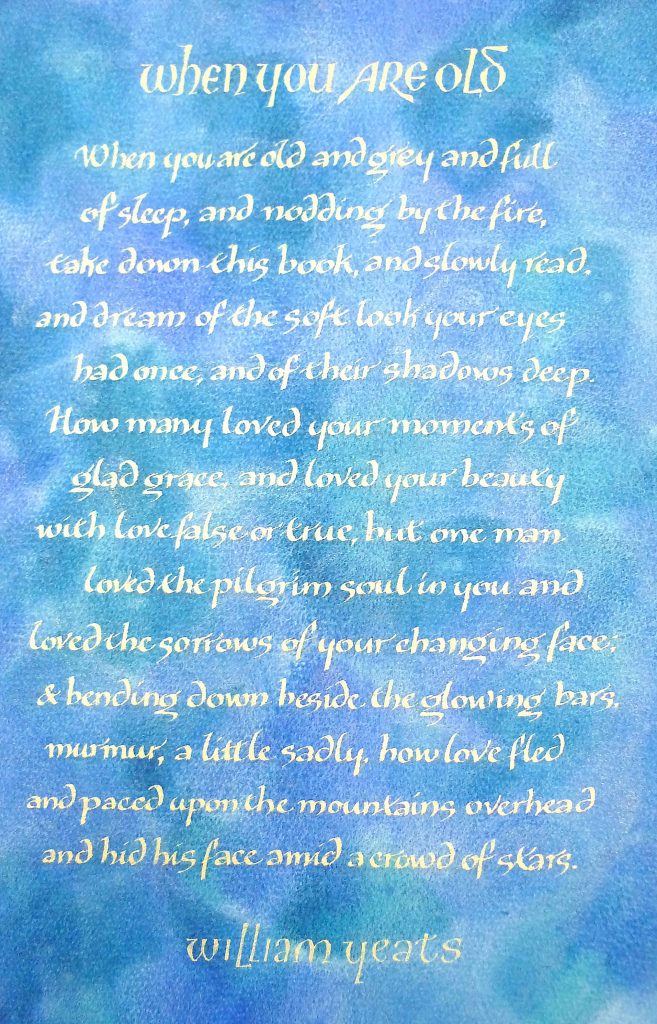 when you ARE old
When you are old and grey and full
of sleep, and nodding by the fire,
take down this book, and slowly read,
and dream of the soft look your eyes
had once, and of their shadows deep.
How many loved your moments of
glad grace, and loved your beauty
with love false or true, but one man
loved the pilgrim soul in you and
loved the sorrows of your changing face;
& bending down beside the glowing bars,
murmur, a little sadly, how love fled
and paced upon the mountains overhead
and hid his face amid a crowd of stars.
william yeats